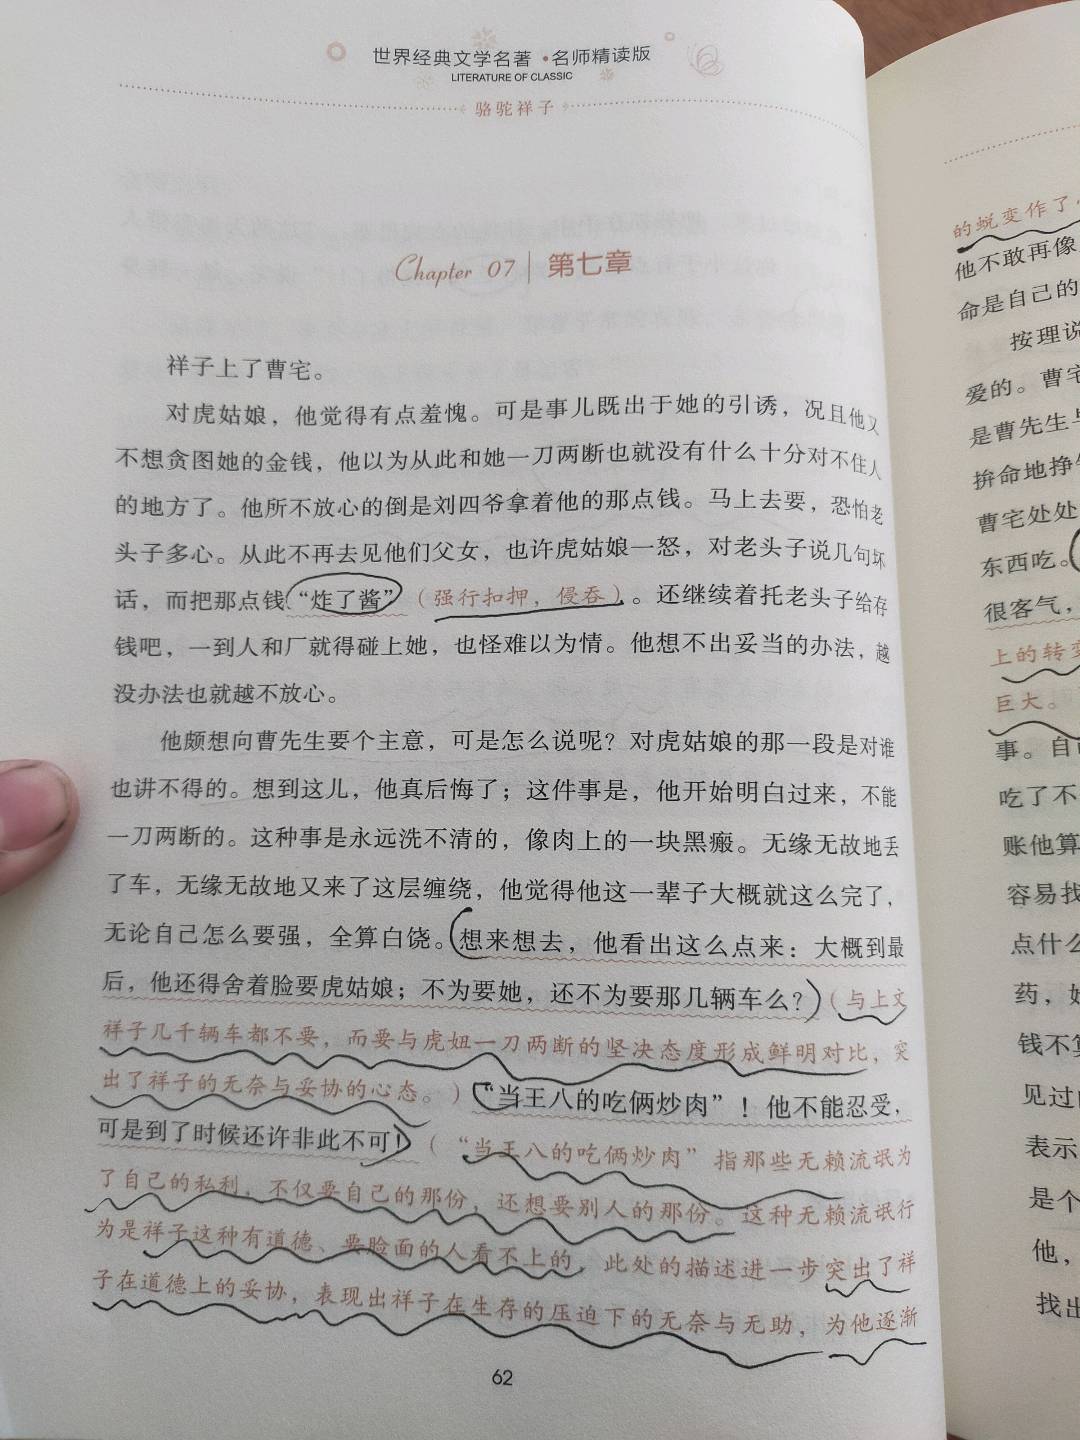 世界经典文学名著·名师精读版
LITERATURE OF CLASSIC
骆驼祥子
Chapter 07 第七章
祥子上了曹宅。
对虎姑娘，他觉得有点羞愧。可是事儿既出于她的引诱，况且他又
不想贪图她的金钱，他以为从此和她一刀两断也就没有什么十分对不住人
的地方了。他所不放心的倒是刘四爷拿着他的那点钱。马上去要，恐怕老
头子多心。从此不再去见他们父女，也许虎姑娘一怒，对老头子说几句坏
话，而把那点钱“炸了酱”（强行扣押，侵吞）。还继续着托老头子给存
钱吧，一到人和厂就得碰上她，也怪难以为情。他想不出妥当的办法，越
没办法也就越不放心。
他颇想向曹先生要个主意，可是怎么说呢？对虎姑娘的那一段是对谁
也讲不得的。想到这儿，他真后悔了；这件事是，他开始明白过来，不能
一刀两断的。这种事是永远洗不清的，像肉上的一块黑瘢。无缘无故地丢
了车，无缘无故地又来了这层缠绕，他觉得他这一辈子大概就这么完了，
无论自己怎么要强，全算白饶。想来想去，他看出这么点来：大概到最
后，他还得舍着脸要虎姑娘；不为要她，还不为要那几辆车么？（与上文
祥子几千辆车都不要，而要与虎妞一刀两断的坚决态度形成鲜明对比，突
出了祥子的无奈与妥协的心态。）“当王八的吃俩炒肉”！他不能忍受，
可是到了时候还许非此不可！（“当王八的吃俩炒肉”指那些无赖流氓为
了自己的私利，不仅要自己的那份，还想要别人的那份。这种无赖流氓行
为是祥子这种有道德、要脸面的人看不上的，此处的描述进一步突出了祥
子在道德上的妥协，表现出祥子在生存的压迫下的无奈与无助，为他逐渐
62
的蜕变作了
他不敢再像
命是自己的
按理说
爱的。曹宅
是曹先生与
拚命地挣
曹宅处处
东西吃。
很客气，
上的转变
巨大。
事。自己
吃了不
账他算
容易找
点什么
药，她
钱不算
见过
表示
是个
他，
找出